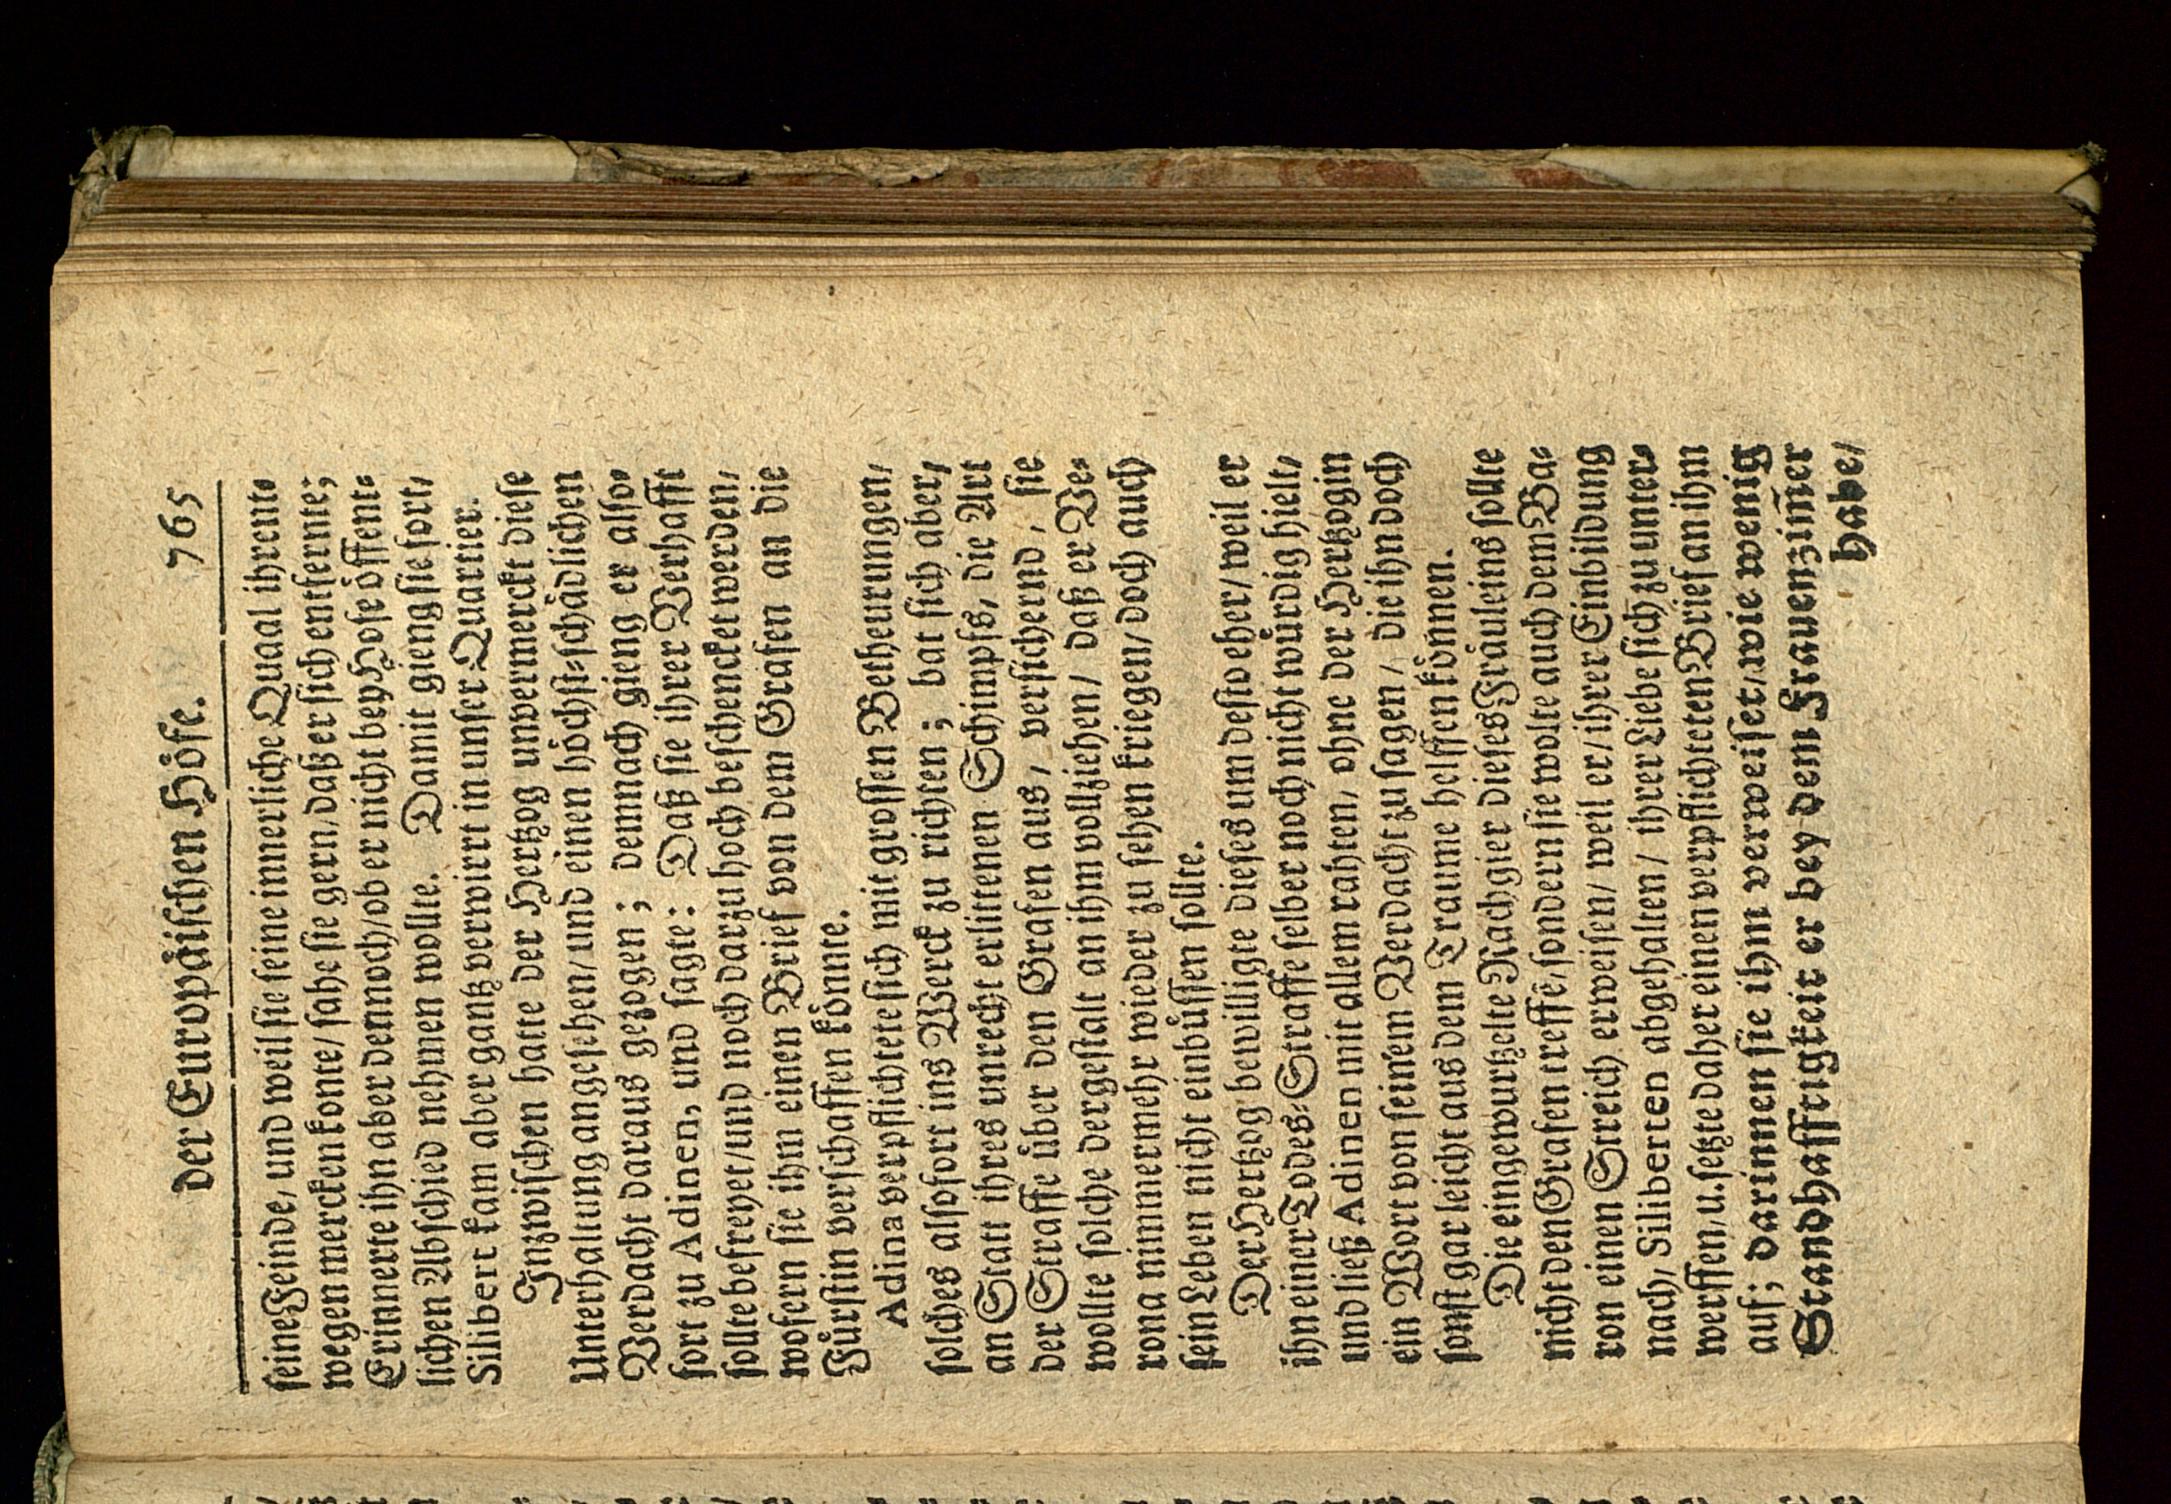 der Europäischen Höfe. 765
seine Feinde, und weil sie seine innerliche Quaal ihrent-
wegen mercken konte/ sahe sie gern/ daß er sich entfernte;
Erinnerte ihn aber dennoch/ ob er nicht bey Hofe öffent-
lichen Abschied nehmen wollte. Damit gieng sie fort/
Silibert kam aber gantz verwirrt in unser Quartier.
Inzwischen hatte der Hertzog unvermerckt diese
Unterhaltung angesehen/ und einen höchst-schädlichen
Verdacht daraus gezogen; demnach gieng er also-
fort zu Adinen, und sagte: Daß sie ihrer Verhafft
sollte befreyet/ und noch darzu hoch beschencket werden/
wofern sie ihm einen Brief von dem Grafen an die
Fürstin verschaffen könnte.
Adina verpflichtete sich mit grossen Betheurungen/
solches alsofort ins Werck zu richten; bat sich aber/
an Statt ihres unrecht erlittenen Schimpfs/ die Art
der Straffe über den Grafen aus/ versichernd/ sie
wollte solche dergestalt an ihm vollziehen/ daß er Ve-
rona nimmermehr wieder zu sehen kriegen/ doch auch
sein Leben nicht einbüssen sollte.
Der Hertzog bewilligte dieses um desto eher/ weil er
ihn einer Todes-Straffe selber noch nicht würdig hielt/
und ließ Adinen mit allem rahten/ ohne der Hertzogin
ein Wort von seinem Verdacht zu sagen/ die ihn doch
sonst gar leicht aus dem Traume helffen können.
Die eingewurtzelte Rachgier dieses Fräuleins sollte
nicht den Grafen treffē/ sondern sie wolte auch dem Ba-
ron einen Streich erweisen/ weil er/ ihrer Einbildung
nach/ Siliberten abgehalten/ ihrer Liebe sich zu unter-
werffen/ u. setzte daher einen verpflichteten Brief an ihm
auf; darinnen sie ihm verweiset/ wie wenig
Standhafftigkeit er bey dem Frauenzim̃er
habe/